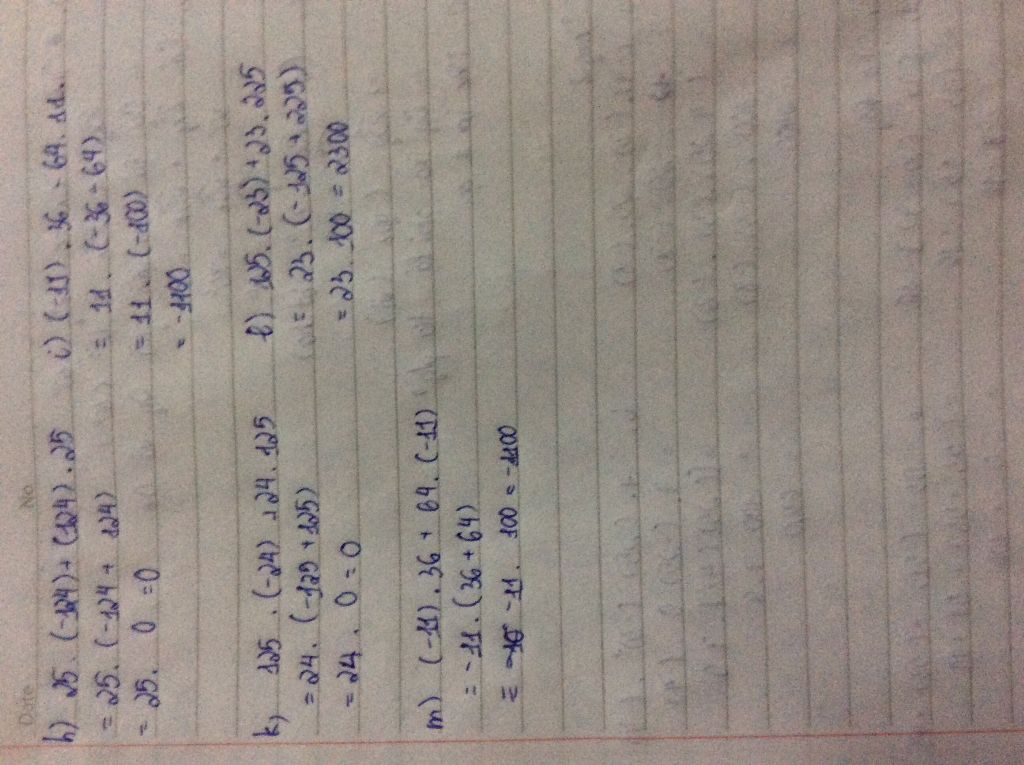 Date
No
h) 25 . (-124) + (124) . 25
= 25 . (-124 + 124)
= 25 . 0 = 0
i) (-11) . 36 - 64 . 11.
= 11 . (-36 - 64)
= 11 . (-100)
= -1100
k) 125 . (-24) + 24 . 125
= 24 . (-125 + 125)
= 24 . 0 = 0
l) 125 . (-23) + 23 . 225
= 23 . (-125 + 225)
= 23 . 100 = 2300
m) (-11) . 36 + 64 . (-11)
= -11 . (36 + 64)
= -11 . 100 = -1100